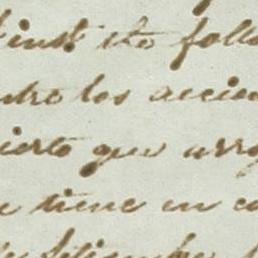 inst sto foll
ntre los accio
ierto que arro
e tiene en c
de setiembre